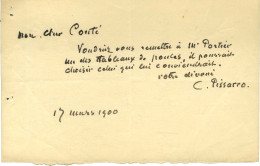 Mon cher Conté
Voudriez vous remettre à Mr Portier
un des tableaux de pontes, il pourrait
choisir celui qui lui conviendrait.
votre dévoué
C. Pissarro
17 mars 1900